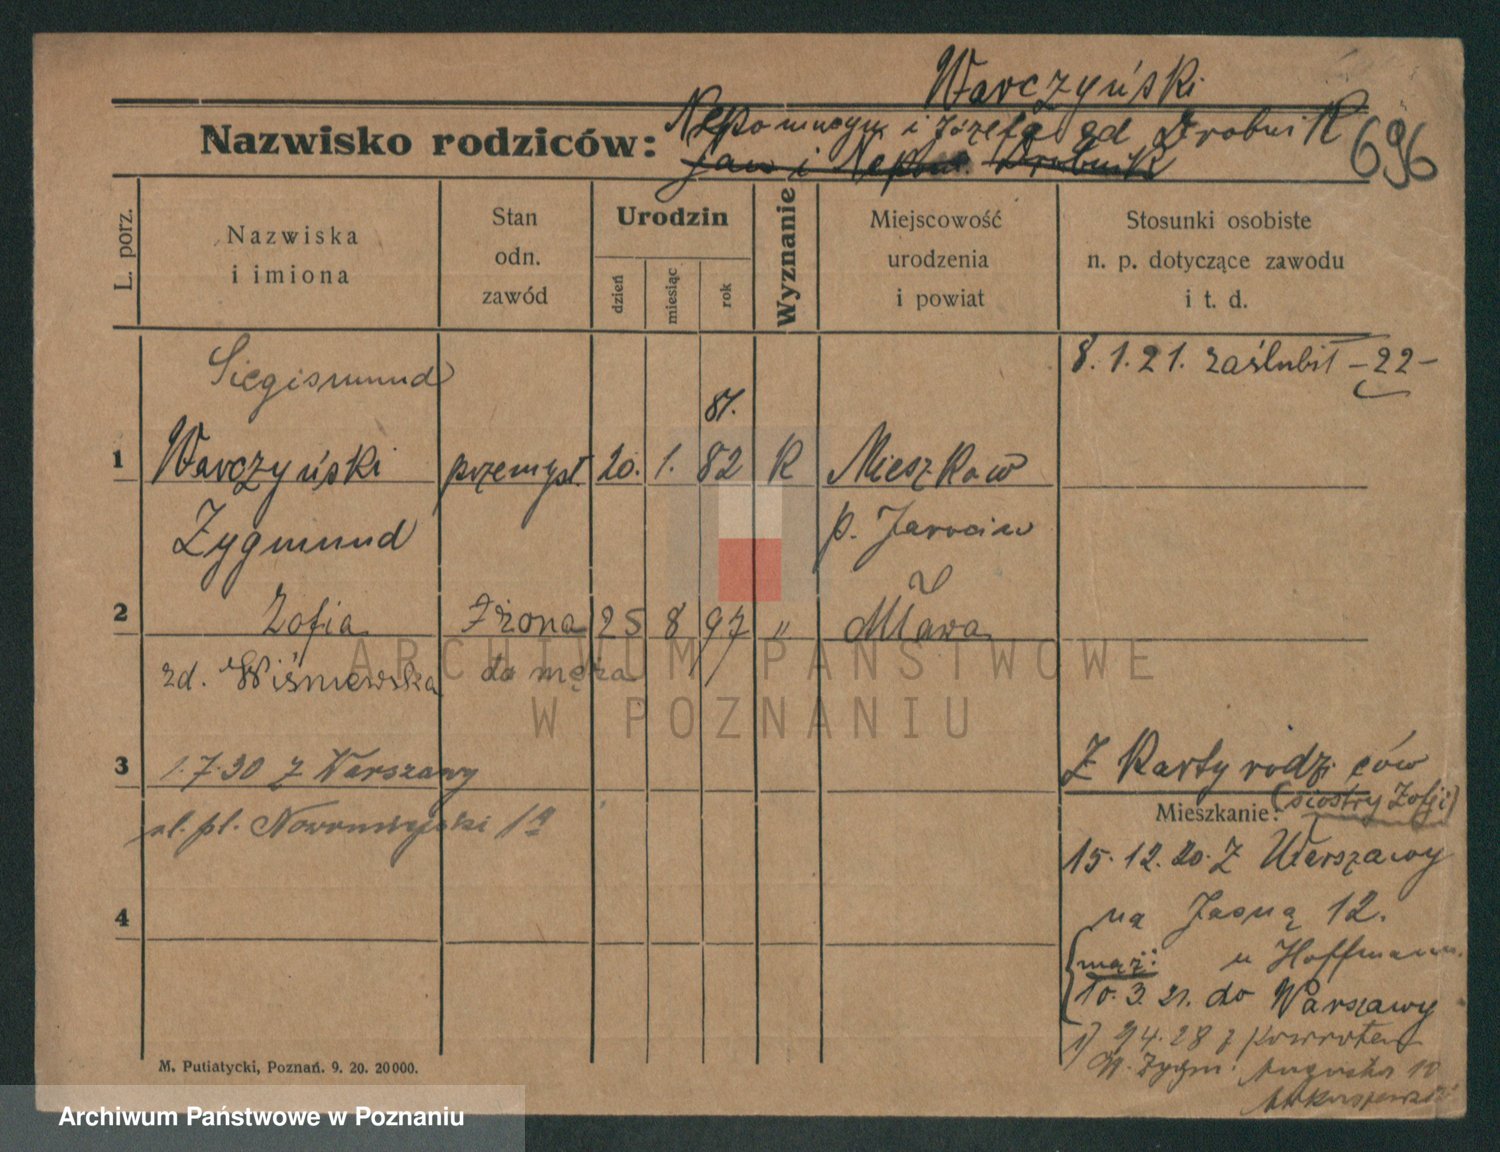 Warczyński
Nazwisko rodziców:
Nepomucyn i Józefa od Drobnik
Jan i Nepom. Drobnik
696
L. porz.
Nazwiska
i imiona
Stan
odn.
zawód
Urodzin
dzień
miesiąc
rok
Wyznanie
Miejscowość
urodzenia
i powiat
Stosunki osobiste
n. p. dotyczące zawodu
i t. d.
Siegismund
8. 1. 21. zaślubił -22-
81.
1 Warczyński przemysł. 20. 1. 82 R Mieszkow
Zygmund p. Jarocin
2 Zofia żona 25 8 97 " Mława
zd. Wiśniewska do męża
3 1.7.30 z Warszawy
Z Karty rodziców
(siostry Zofji)
Mieszkanie:
pl. Nowomiejski 1a
15. 12. 20. Z Warszawy
na Jasną 12.
4
mąż: u Hoffmann.
10. 3. 21. do Warszawy
Zygm. Augusta 10
M. Putiatycki, Poznań. 9. 20. 20000.
ARCHIWUM PAŃSTWOWE
W POZNANIU
Archiwum Państwowe w Poznaniu